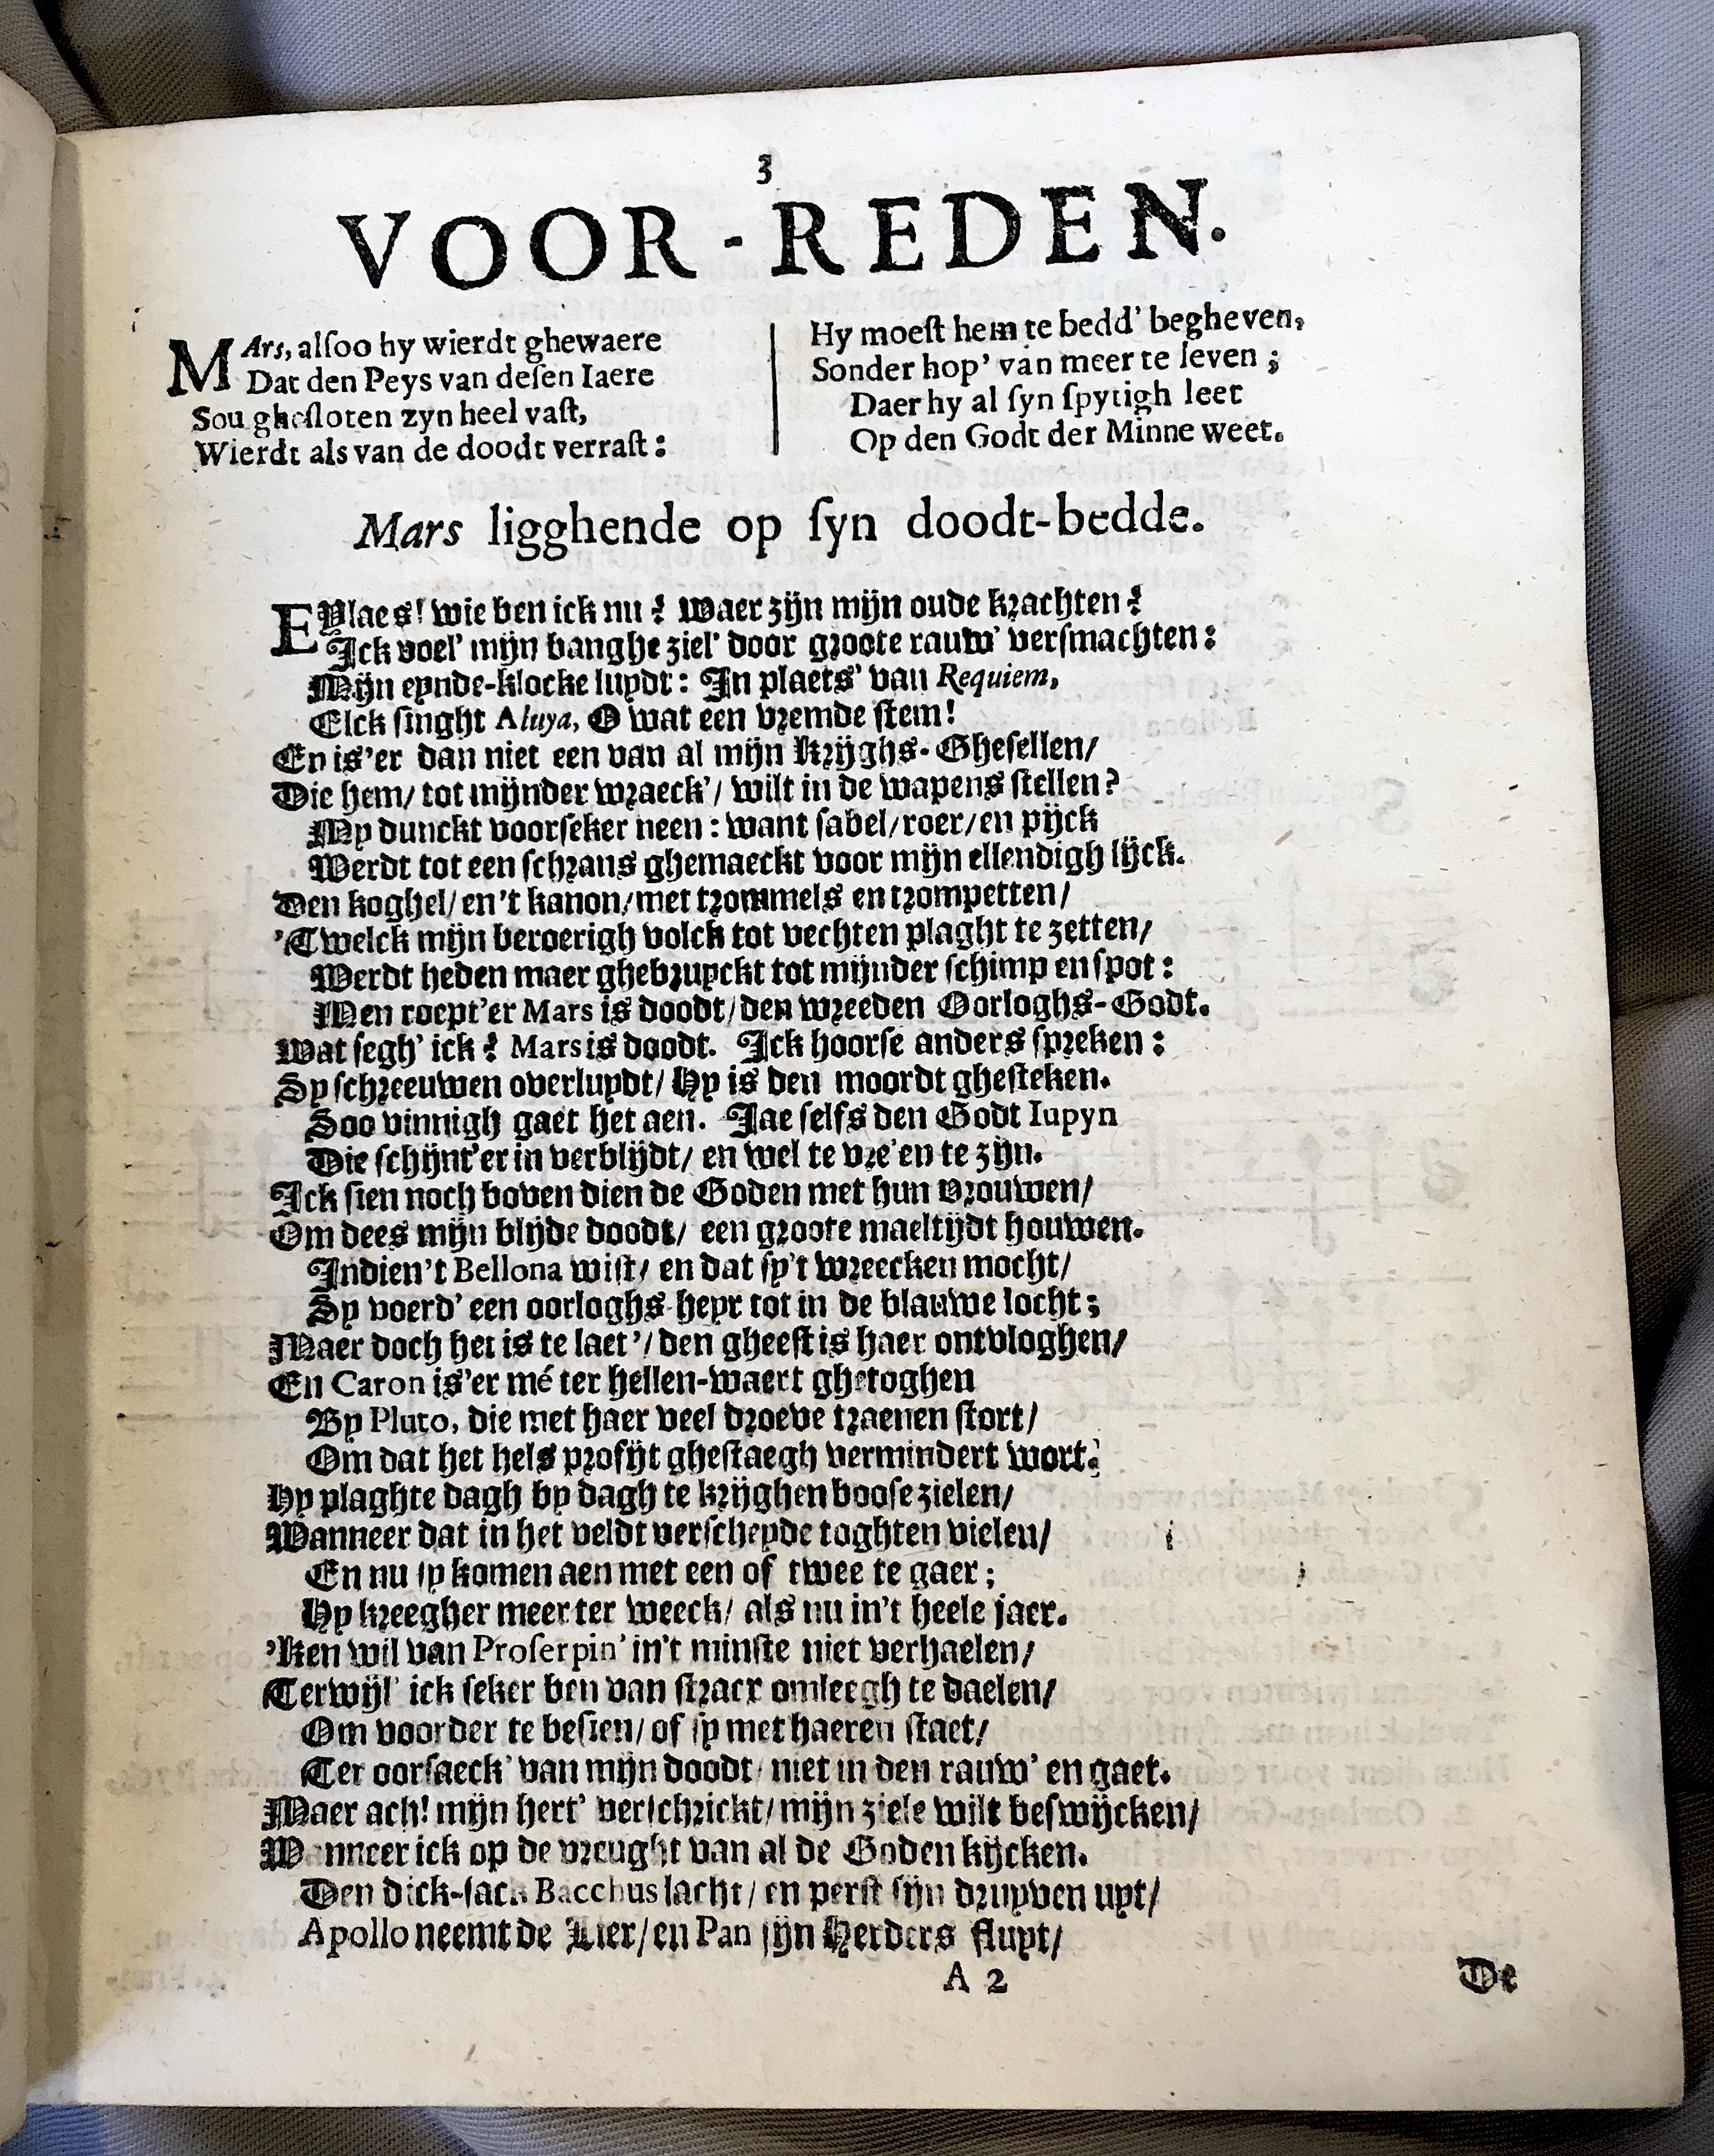 3
VOOR-REDEN.
MArs, alſoo hy wierdt ghewaere
Dat den Peys van deſen Iaere
Sou gheſloten zyn heel vaſt,
Wierdt als van de doodt verraſt:
Hy moeſt hem te bedd' begheven,
Sonder hop' van meer te leven;
Daer hy al ſyn ſpytigh leet
Op den Godt der Minne weet.
Mars ligghende op ſyn doodt-bedde.
EYlaes! wie ben ick nu? Waer zijn mijn oude krachten?
Ick voel' mijn banghe ziel' door groote rauw' verſmachten:
Mijn eynde-klocke luydt: In plaets' van Requiem,
Elck ſinght Aluya, O wat een vremde ſtem!
En is'er dan niet een van al mijn Krijghs-Gheſellen/
Die hem/ tot mijnder wraeck'/ wilt in de wapens ſtellen?
My dunckt voorſeker neen: want ſabel/ roer/ en pijck
Werdt tot een ſchrans ghemaeckt voor mijn ellendigh lijck.
Den koghel/ en 't kanon/ met trommels en trompetten/
'Twelck mijn beroerigh volck tot vechten plaght te zetten/
Werdt heden maer ghebruyckt tot mijnder ſchimp en ſpot:
Men roept'er Mars is doodt/ den wreeden Oorloghs-Godt.
Wat ſegh' ick? Mars is doodt. Ick hoorſe anders ſpreken:
Sy ſchreeuwen overluydt/ Hy is den moordt gheſteken.
Soo vinnigh gaet het aen. Jae ſelfs den Godt Iupyn
Die ſchijnt'er in verblijdt/ en wel te vre'en te zijn.
Ick ſien noch boven dien de Goden met hun vrouwen/
Om dees mijn blijde doodt/ een groote maeltijdt houwen.
Indien't Bellona wiſt/ en dat ſy't wreecken mocht/
Sy voerd' een oorloghs-heyr tot in de blauwe locht;
Maer doch het is te laet'/ den gheeſt is haer ontvloghen/
En Caron is'er mé ter hellen-waert ghetoghen
By Pluto, die met haer veel droeve traenen ſtort/
Om dat het hels profijt gheſtaegh vermindert wort.
Hy plaghte dagh by dagh te krijghen booſe zielen/
Wanneer dat in het veldt verſcheyde toghten vielen/
En nu ſy komen aen met een of twee te gaer;
Hy kreegher meer ter weeck/ als nu in't heele jaer.
'Ken wil van Proſerpin' in't minſte niet verhaelen/
Terwijl' ick ſeker ben van ſtracx omleegh te daelen/
Om voorder te beſien/ of ſy met haeren ſtaet/
Ter oorſaeck' van mijn doodt/ niet in den rauw' en gaet.
Maer ach! mijn hert' verſchrickt/ mijn ziele wilt beſwijcken/
Wanneer ick op de vreught van al de Goden kijcken.
Den dick-ſack Bacchus lacht/ en perſt ſijn druyven uyt/
Apollo neemt de Lier/ en Pan ſijn Herders fluyt/
A 2
De